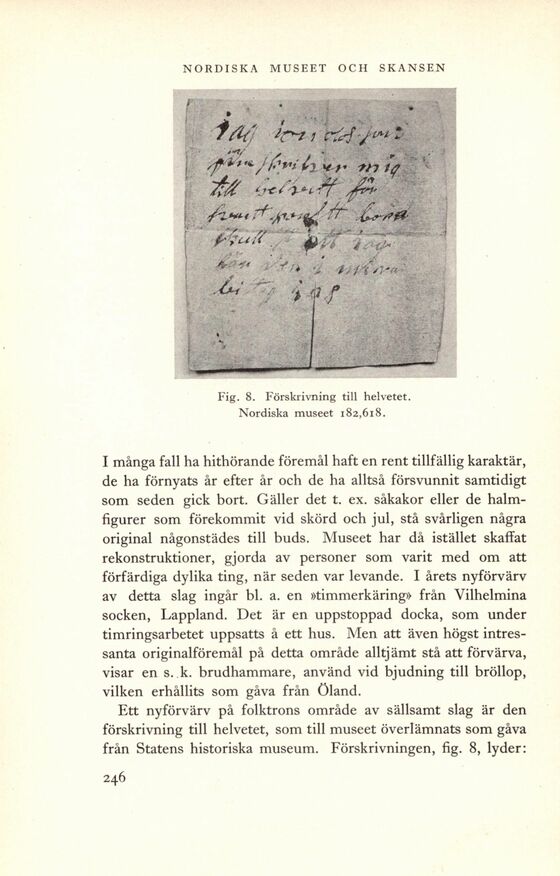 NORDISKA MUSEET OCH SKANSEN
jag
mig
till för
bond
skull jag
i
Fig. 8. Förskrivning till helvetet.
Nordiska museet 182,618.
I många fall ha hithörande föremål haft en rent tillfällig karaktär,
de ha förnyats år efter år och de ha alltså försvunnit samtidigt
som seden gick bort. Gäller det t. ex. såkakor eller de halm-
figurer som förekommit vid skörd och jul, stå svårligen några
original någonstädes till buds. Museet har då istället skaffat
rekonstruktioner, gjorda av personer som varit med om att
förfärdiga dylika ting, när seden var levande. I årets nyförvärv
av detta slag ingår bl. a. en »timmerkäring» från Vilhelmina
socken, Lappland. Det är en uppstoppad docka, som under
timringsarbetet uppsatts å ett hus. Men att även högst intres-
santa originalföremål på detta område alltjämt stå att förvärva,
visar en s. k. brudhammare, använd vid bjudning till bröllop,
vilken erhållits som gåva från Öland.
Ett nyförvärv på folktrons område av sällsamt slag är den
förskrivning till helvetet, som till museet överlämnats som gåva
från Statens historiska museum. Förskrivningen, fig. 8, lyder:
246